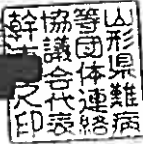 山形県難病
等団体連絡
協議会代表
幹之印